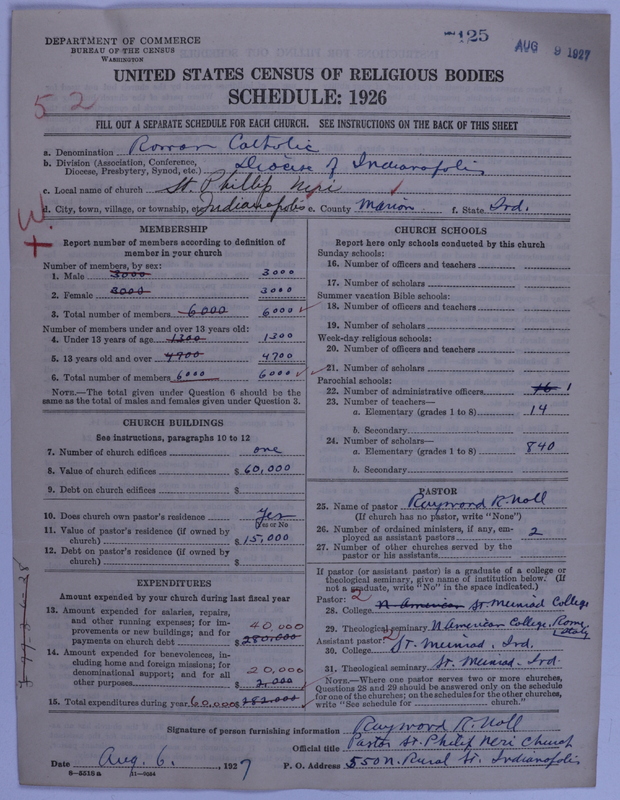 DEPARTMENT OF COMMERCE
BUREAU OF THE CENSUS
WASHINGTON
125
AUG 9 1927
UNITED STATES CENSUS OF RELIGIOUS BODIES
SCHEDULE: 1926
52
FILL OUT A SEPARATE SCHEDULE FOR EACH CHURCH. SEE INSTRUCTIONS ON THE BACK OF THIS SHEET
a. Denomination Roman Catholic
b. Division (Association, Conference, Diocese, Presbytery, Synod, etc.) Diocese of Indianapolis
c. Local name of church St. Phillip Neri
d. City, town, village, or township, etc. Indianapolis e. County Marion f. State Ind.
W.
MEMBERSHIP
Report number of members according to definition of
member in your church
Number of members, by sex:
1. Male 3000 3000
2. Female 3000 3000
3. Total number of members 6000 6000
Number of members under and over 13 years old:
4. Under 13 years of age 1300 1300
5. 13 years old and over 4700 4700
6. Total number of members 6000 6000
NOTE.—The total given under Question 6 should be
same as the total of males and females given under Question 3.
CHURCH BUILDINGS
See instructions, paragraphs 10 to 12
7. Number of church edifices one
8. Value of church edifices $ 60,000
9. Debt on church edifices $
10. Does church own pastor's residence Yes
Yes or No
11. Value of pastor's residence (if owned by
church) $ 15,000
12. Debt on pastor's residence (if owned by
church) $
EXPENDITURES
Amount expended by your church during last fiscal year
13. Amount expended for salaries, repairs,
and other running expenses; for im-
provements or new buildings; and for 40,000
payments on church debt $ 280,000
14. Amount expended for benevolences, in-
cluding home and foreign missions; for
denominational support; and for all 20,000
other purposes $ 2,000
15. Total expenditures during year 60,000 $ 282,000
CHURCH SCHOOLS
Report here only schools conducted by this church
Sunday schools:
16. Number of officers and teachers
17. Number of scholars
Summer vacation Bible schools:
18. Number of officers and teachers
19. Number of scholars
Week-day religious schools:
20. Number of officers and teachers
21. Number of scholars
Parochial schools:
22. Number of administrative officers 16 1
23. Number of teachers—
a. Elementary (grades 1 to 8) 14
b. Secondary
24. Number of scholars—
a. Elementary (grades 1 to 8) 840
b. Secondary
PASTOR
25. Name of pastor Raymond R. Noll
(If church has no pastor, write "None")
26. Number of ordained ministers, if any, em-
ployed as assistant pastors 2
27. Number of other churches served by the
pastor or his assistants
If pastor (or assistant pastor) is a graduate of a college or
theological seminary, give name of institution below. (If
not a graduate, write "No" in the space indicated.)
Pastor: 2
28. College N American St. Meinrad College
29. Theological seminary N American College, Rome, Italy
Assistant pastor: 2
30. College St. Meinrad, Ind.
31. Theological seminary St. Meinrad - Ind
NOTE.—Where one pastor serves two or more churches,
Questions 28 and 29 should be answered only on the schedule
for one of the churches; on the schedules for the other churches,
write "See schedule for church."
Signature of person furnishing information Raymond R. Noll
Official title Pastor St. Philip Neri Church
Date Aug. 6. 1927 P. O. Address 550 N. Rural St. Indianapolis
8—5516a 11—9034